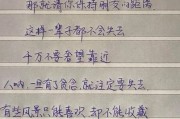 那就请你保持朋友的距离
这样一辈子都不会失去
千万不要奢望靠近
人吶一旦有了贪念,就注定要失去
有些风景只能喜欢却不能收藏